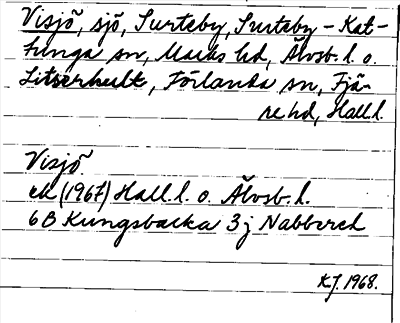 Visjö, sjö, Surteby, Surteby-Kat-
tunga sn, Marks hd, Älvsb. l. o.
Litserhult, Förlanda sn, Fjä-
re hd, Hall. l.
Visjö
ek (1967) Hall. l. o. Älvsb. l.
6B Kungsbacka 3j
KJ. 1968.